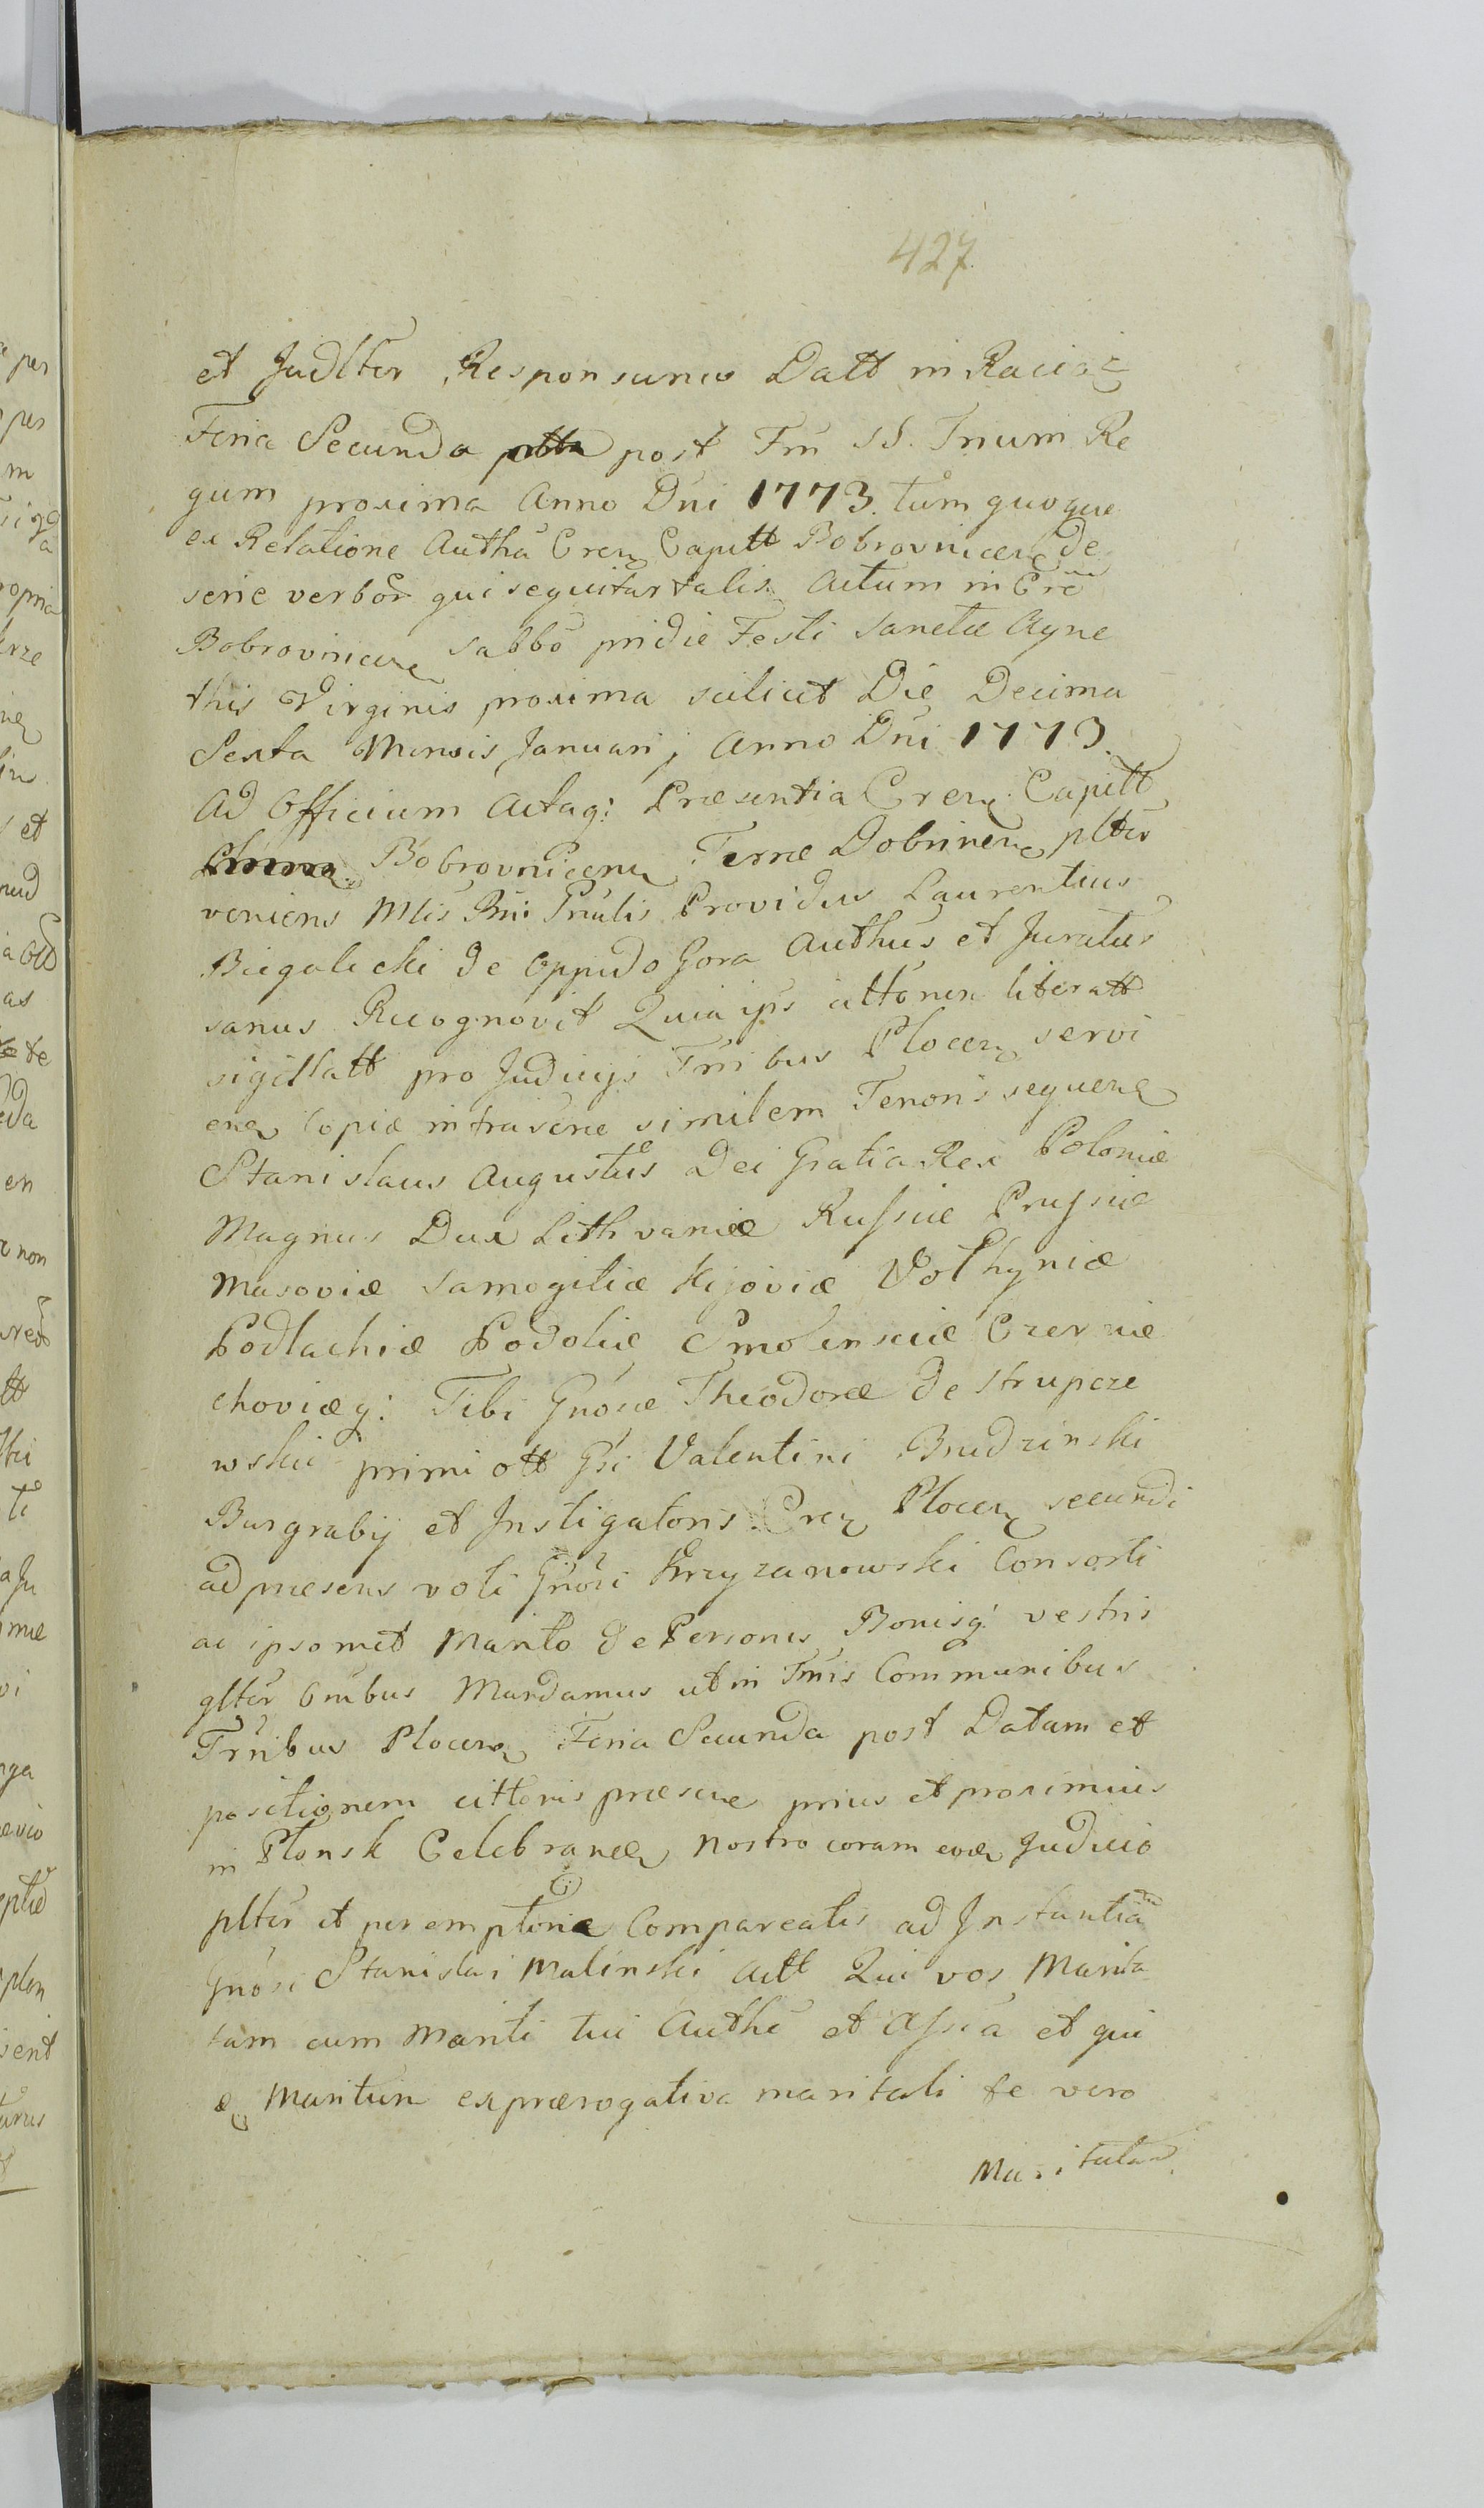 427
et Judltter Responsurus Datt in Raciąż
Feria Secunda post Fm SS. Trium Re
gum proxima Anno Dni 1773. tum quoque
ex Relatione Autha Cren Capitt Bobrovnicen de
serie verbor qui sequitur talis. Actum in Cre
Bobrovnicen Sabbo pridie Festi Sanctæ Agne
this Virginis proxima scilicet Die Decima
Sexta Mensis Januarij Anno Dni 1773.
Ad Officium Actaq: Præsentia Cren Capitt
Bobrovnicen Terræ Dobrinen plter
veniens Mtis Rni Gnlis Providus Laurentius
Biegalicki de Oppido Gora Authus et Juratus
sanus Recognovit Quia ips cittonem literatt
sigillatt pro Judicijs Tmibus Plocen servi
en Copiæ infrascræ similem Tenoris sequen
Stanislaus Augustus Dei Gratia Rex Poloniæ
Magnus Dux Lithvaniæ Russiæ Prussiæ
Masoviæ Samogitiæ Kijoviæ Volhyniæ
Podlachiæ Podoliæ Smolensciæ Czernie
choviæq: Tibi Gnosæ Theodoræ de Strupcze
wskie primi ott Gsi Valentini Brudzinski
Burgrabij et Instigatoris Cren Plocen secundi
ad præsens voti Gnosi Krzyzanowski Consorti
ac ipsomet Marito de Personis Bonisq: vestris
glter Omibus Mandamus ut in Tmis Communibus
Trnibus Plocen Feria Secunda post Datam et
positionem cittonis præscræ prius et proximius
in Plonsk Celebran Nostro coram eod Judicio
plter et peremptorie Compareatis ad Instantiam
Gnosi Stanislai Malinski Actt Qui vos Marita
tam cum Mariti tui Authe et Assia et qui
Maritum ex prærogativa maritali te vero
Maritatam